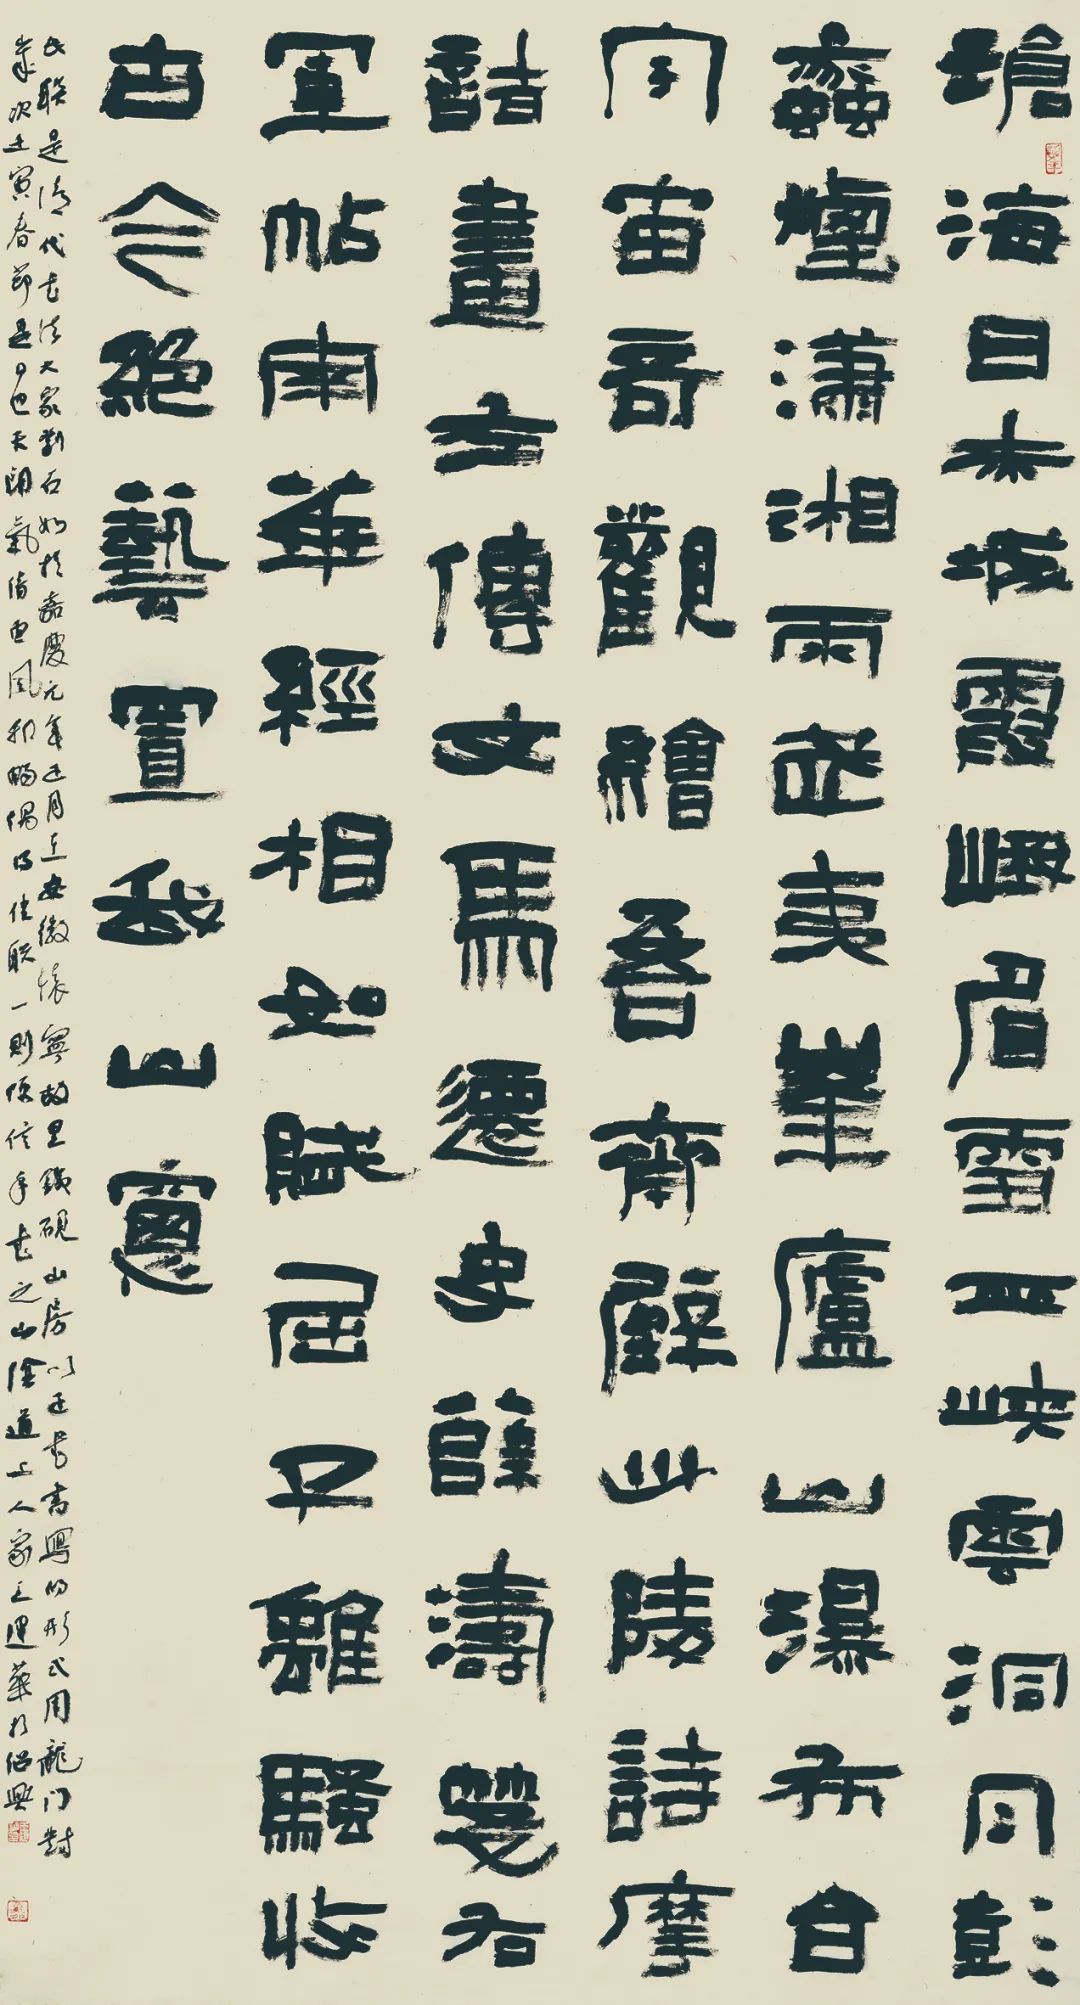 滄海日赤城霞峨眉雪巫峽雲洞月彭
蠡煙瀟湘雨武夷峯廬山瀑布合
宇宙奇觀繪吾齋壁少陵詩摩
詰畫左傳文馬遷史薛濤箋右
軍帖南華經相如賦屈子離騷收
古今絕藝置我山窻
此聯是清代書法大家鄧石如於嘉慶元年正月在安徽懷寧故里鐵硯山房以正書書寫的形式用龍门對
歲次壬寅春節是日也天朗氣清惠風和暢偶得佳联一則便信手書之山陰道上人家王運華於紹興